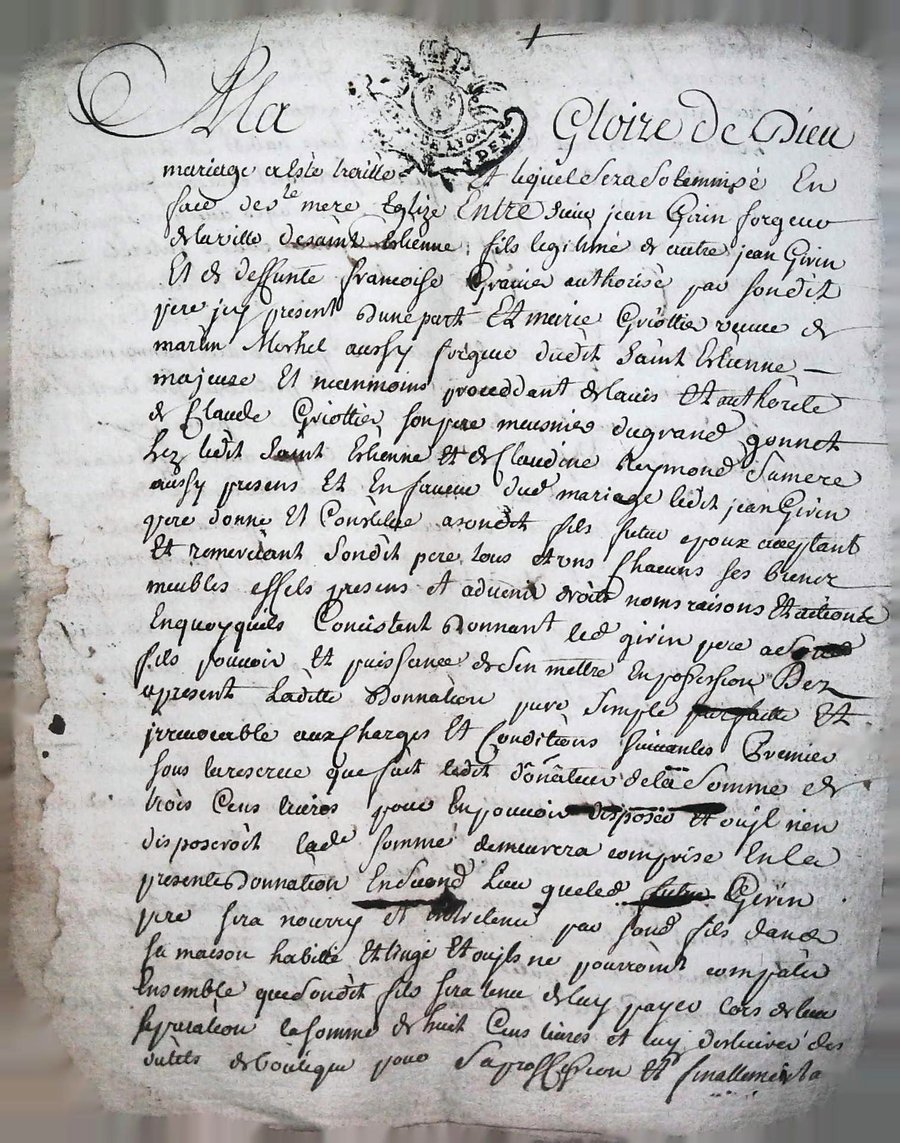 A la Gloire de Dieu
DE LYON
DEN.
mariage a este traitte Et lequel sera solemnisé En
face de ste mere Eglize Entre sieur jean Girin forgeur
de la ville de saint Etienne, fils legitime de autre jean Girin
Et de deffunte francoise Granier authorisé par sondit
pere jcy present d'une part Et marie Griottier veuve de
martin Morhel aussy forgeur dudit Saint Etienne
majeure Et neanmoins proceddant de lavis Et authorité
de Claude Griottier son pere meusnier du grand gonnet
Lez ledit Saint Etienne et de Claudine Reymond sa mere
aussy presens Et En faveur dud mariage ledit jean Girin
pere donne Et Constitue a sondit fils futur epoux acceptant
Et remerciant sondit pere tous et uns chacuns ses biens
meubles effets presens et advenir droits noms raisons Et actions
En quoy quils Concistent Donnant led girin pere a
fils pouvoir Et puissance de sen mettre En possession Dez
apresent Laditte Donnation pure simple parfaitte Et
jrrevocable aux Charges Et Conditions suivantes Premier
sous la reserve que fait ledit donateur de la somme de
trois Cens livres pour En pouvoir disposer Et ou jl nen
disposeroit lade somme demeurera comprise En la
presente Donnation En second Lieu que led Girin
pere sera nourry et entretenu par sond fils dans
sa maison habillé Et linge Et ou jls ne pourroint compatir
Ensemble que sondit fils sera tenu de luy payer Lors de leur
separation la somme de huit Cens livres et luy deslivrer des
outils de boutique pour sa proffession Et finallement a